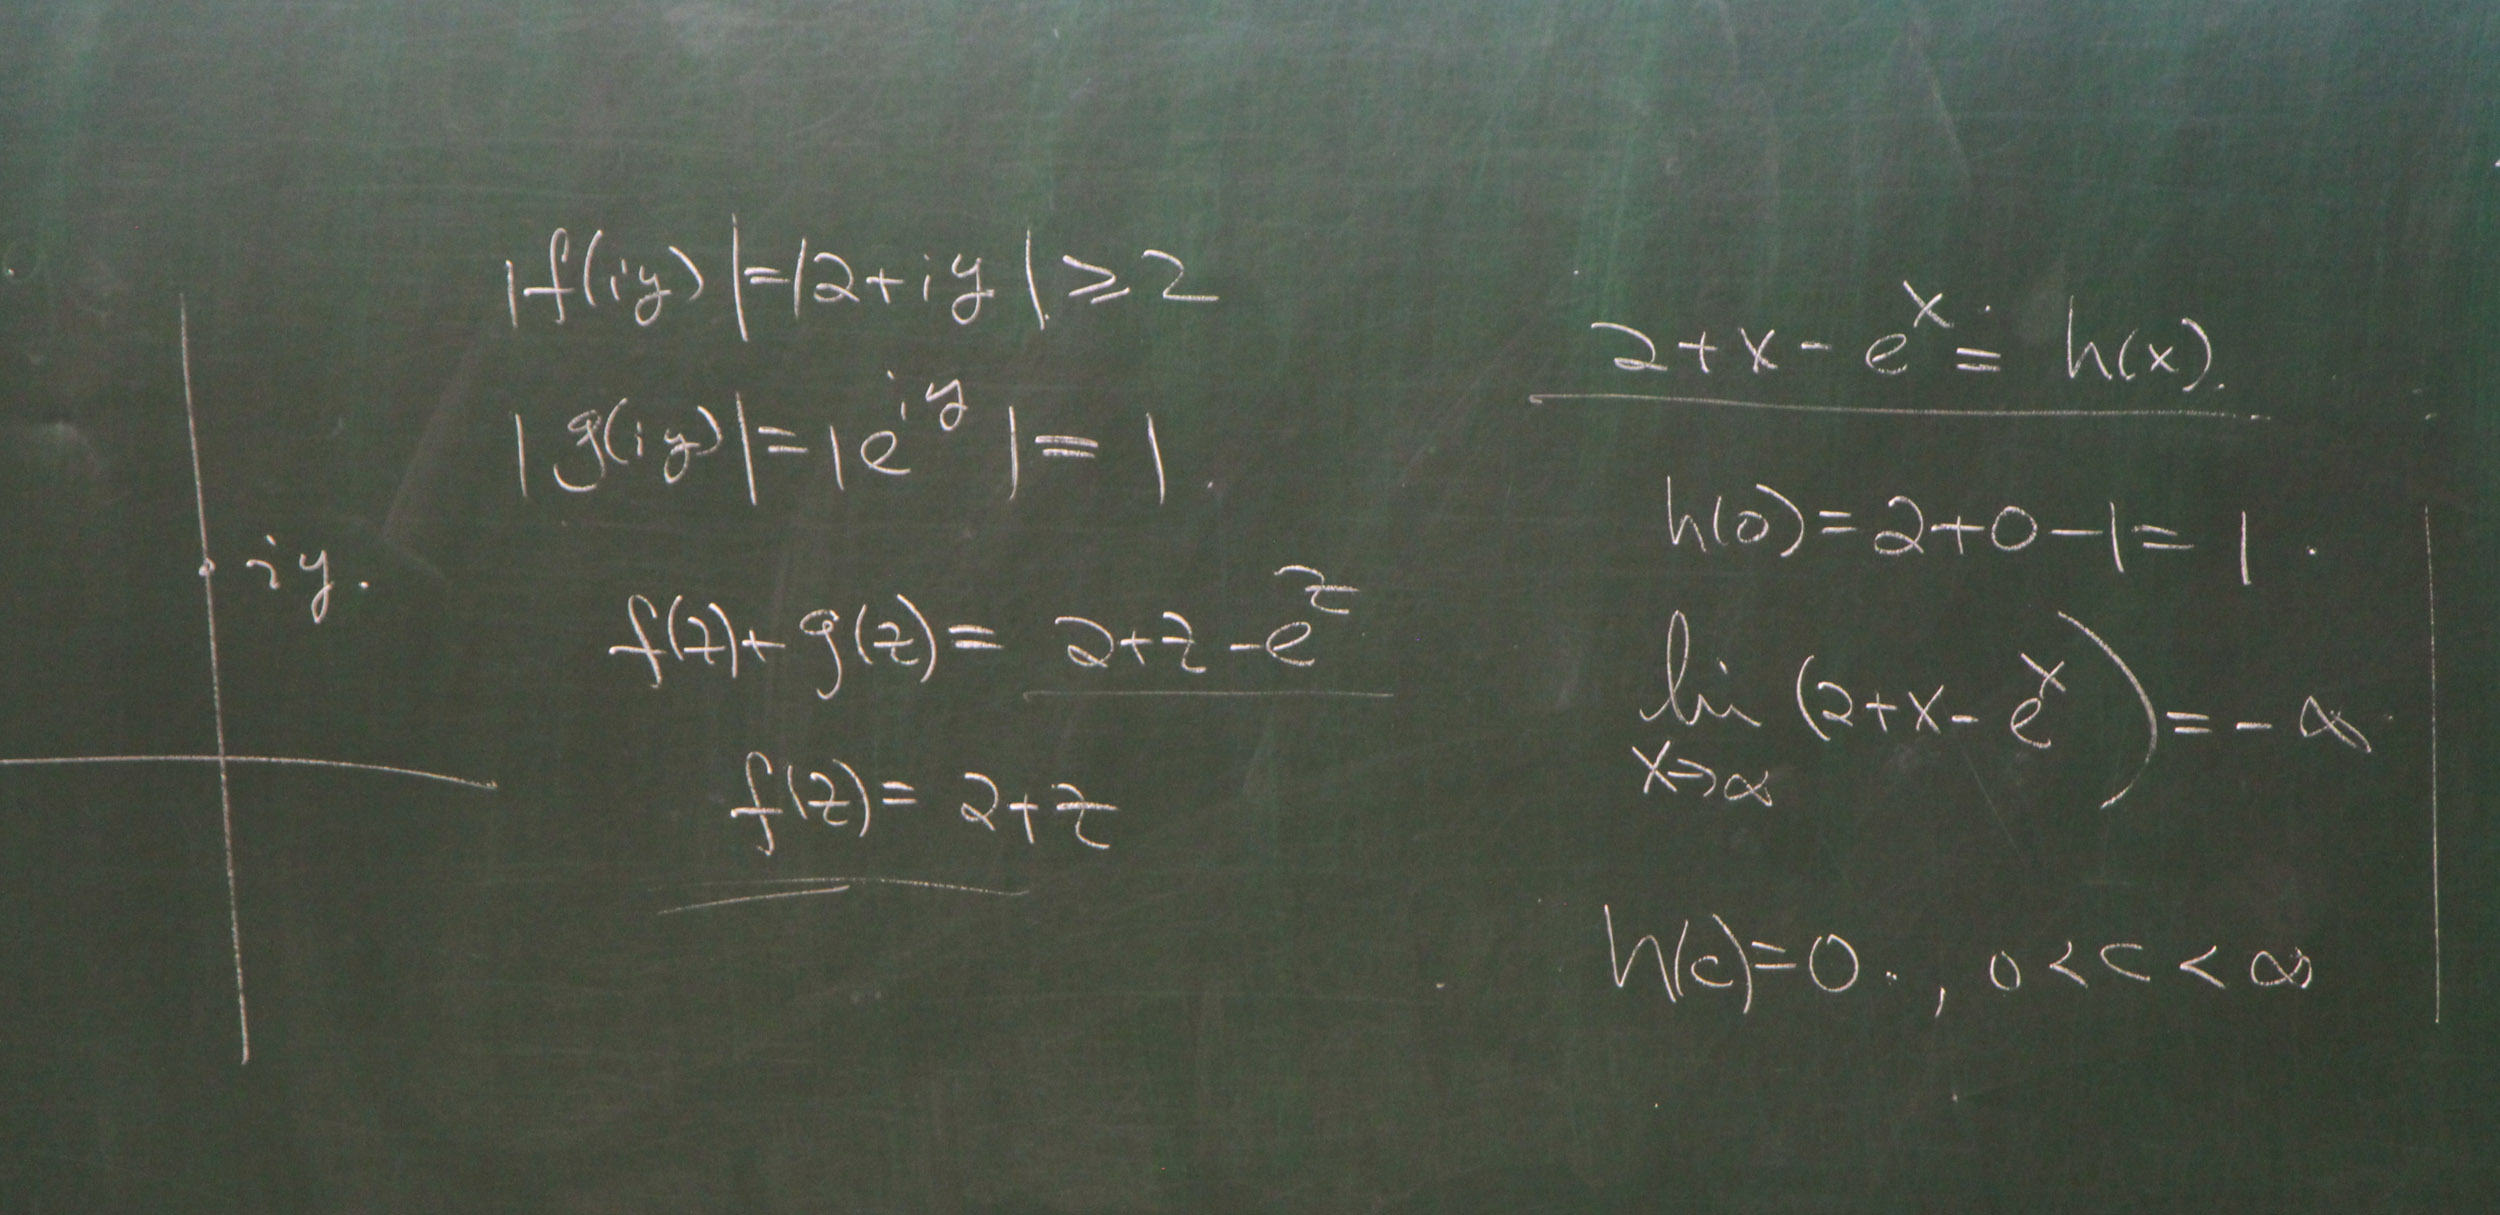 |f(iy)|=|2+iy|≥2
|g(iy)|=|e^{iy}|=1.
iy.
f(z)+g(z)=2+z-e^z
f(z)=2+z
2+x-e^x=h(x).
h(0)=2+0-1=1.
li (2+x-e^x)=-∞
x→∞
h(c)=0., 0<c<∞